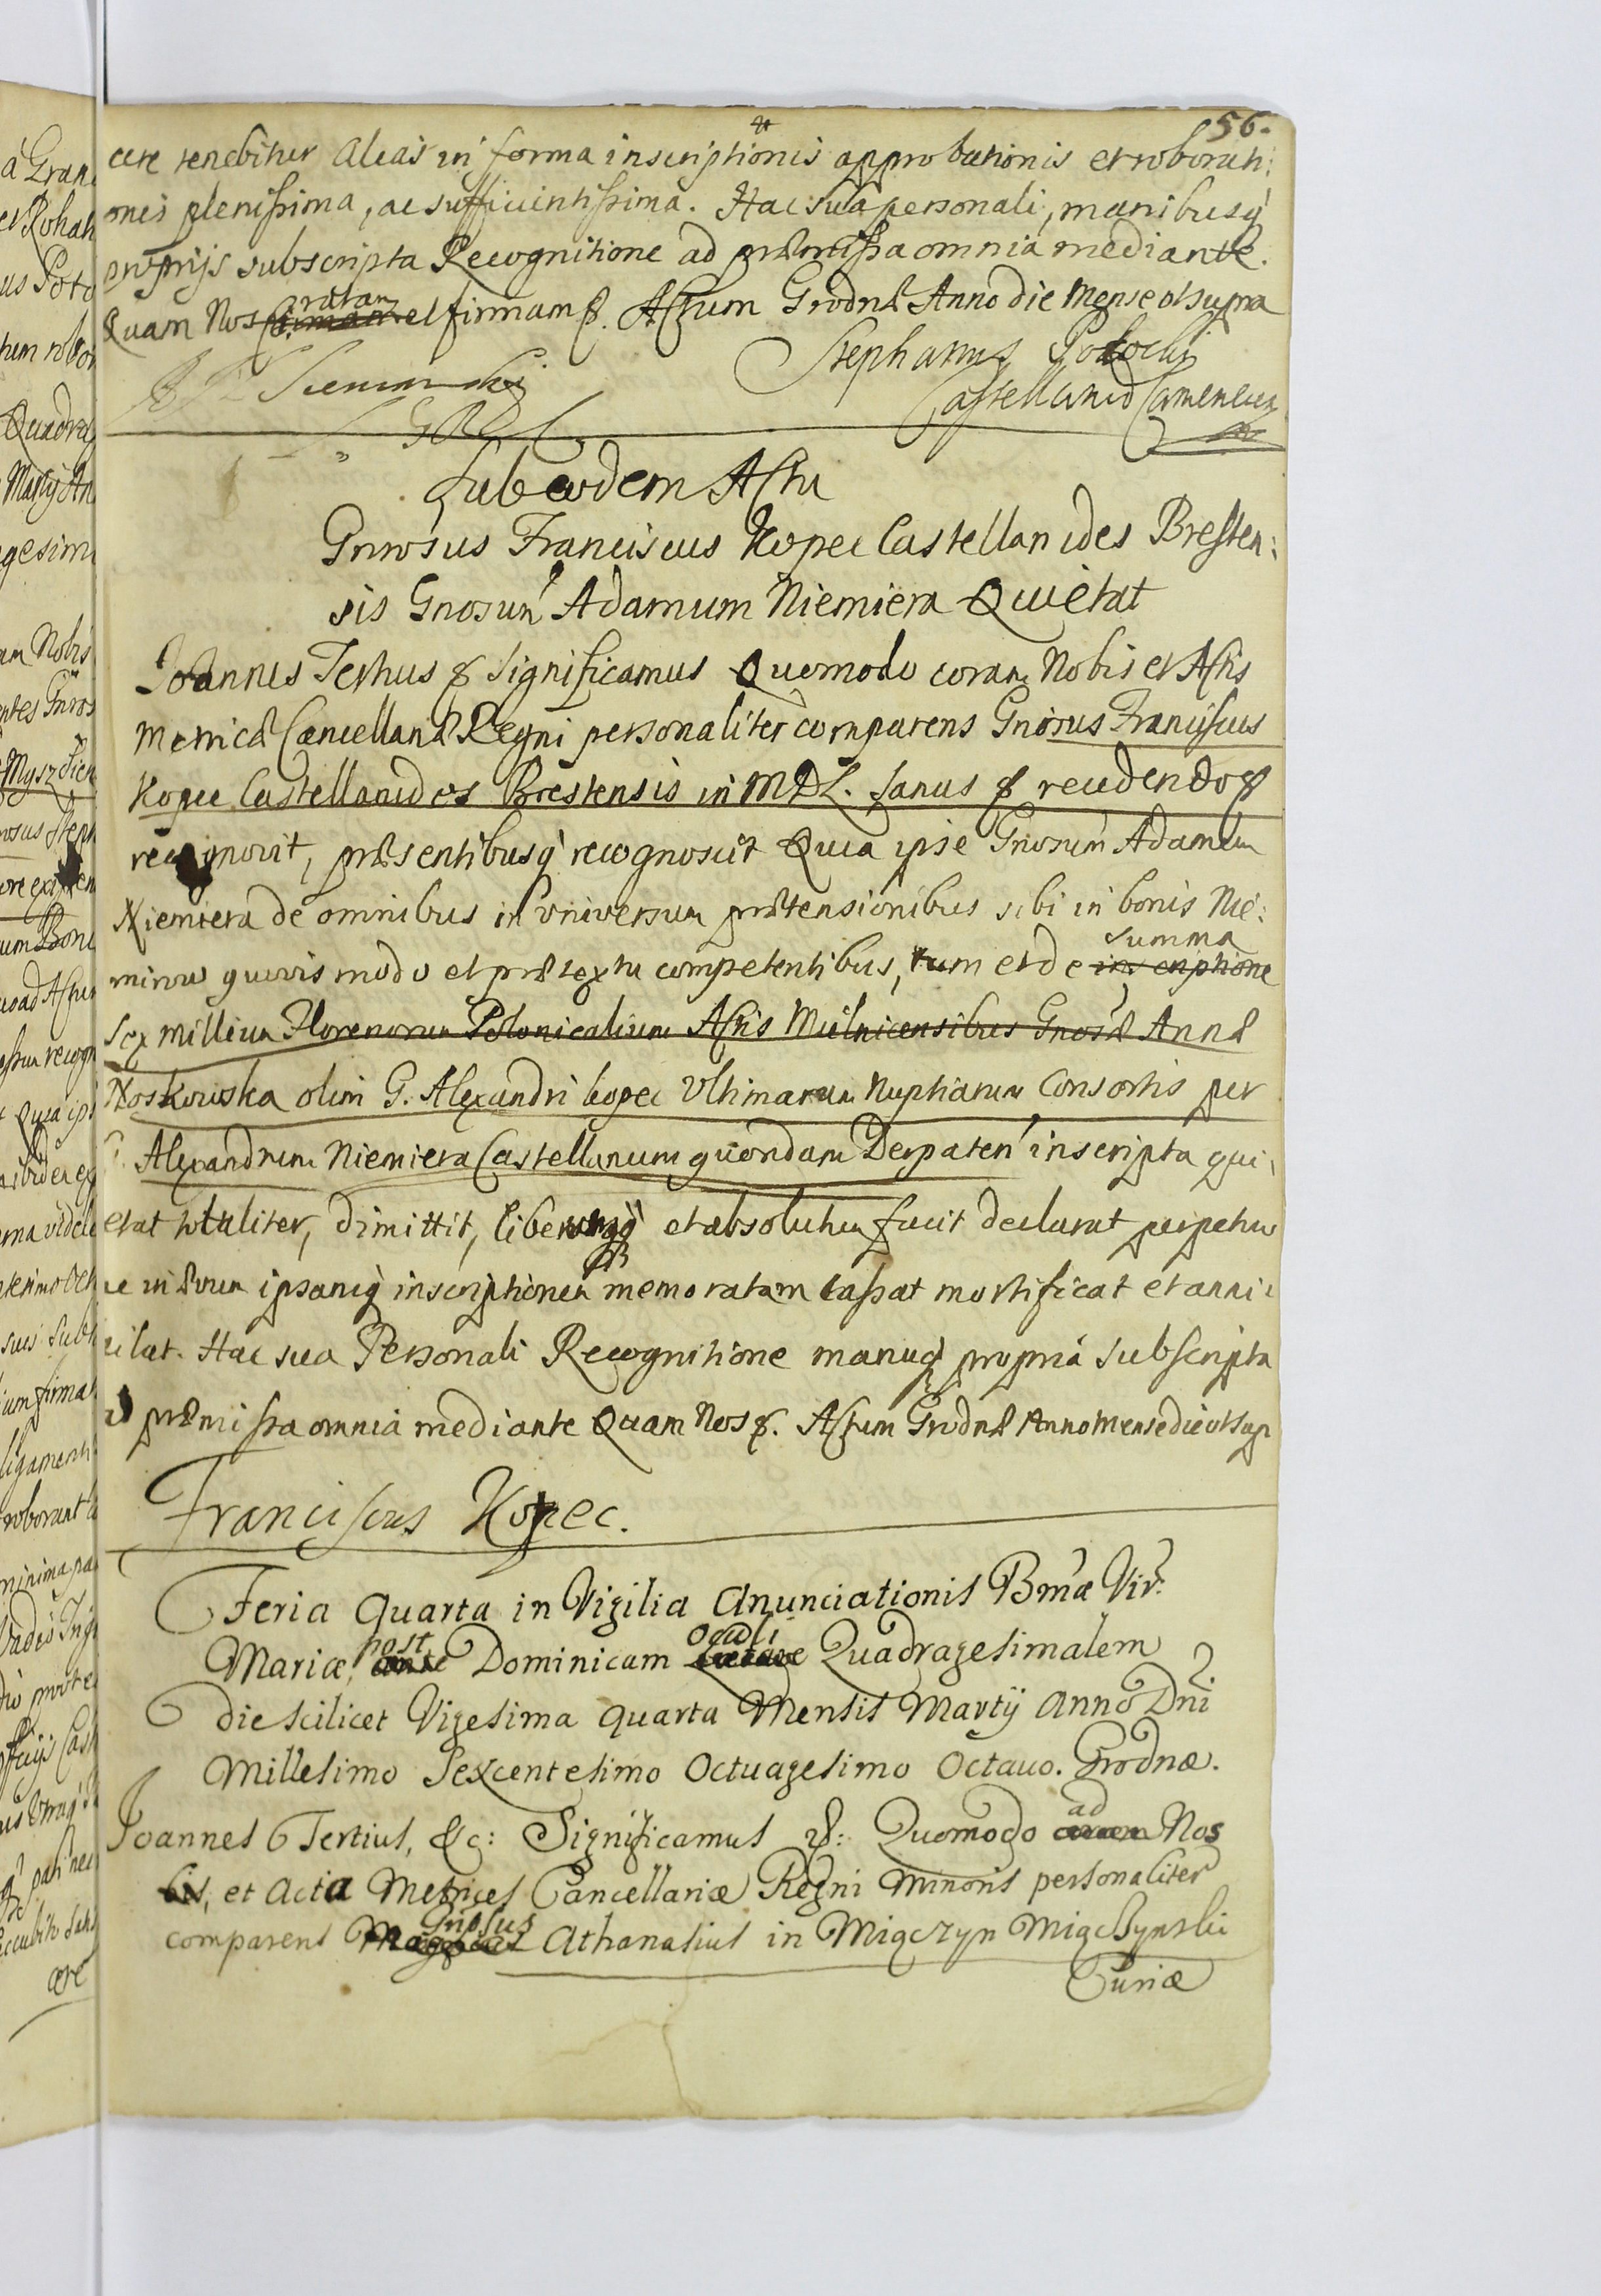 56.
cere tenebitur alias in forma inscriptionis approbationis et roborati:
onis plenissima, ac sufficientissima. Hac sua personali, manibusq
proprijs subscripta Recognitione ad præmissa omnia mediante.
Quam Nos ratam et firmam &. Actum Grodnæ Anno die Mense ut supra
Stephanus Potocki
Castellanid Camenecen
Sub eodem Actu
Gnrosus Franciscus Kopec Castellanides Bresten:
sis Gnosum Adamum Niemiera Quietat
Joannes Tertius & significamus Quomodo coram Nobis et Actis
Metricæ Cancellariæ Regni personaliter comparens Gnrosus Franciscus
Kopec Castellanides Brestensis in MDL. sanus & recedendo &
recognovit, præsentibusq recognoscit Quia ipse Gnosum Adamum
Niemiera de omnibus in universum prætensionibus sibi in bonis Nie:
mirow quovis modo et prætextu competentibus, tum et de inscriptione summa
Sex millium Florenorum Polonicalium Actis Mielnicensibus Gnosæ Annæ
Noskowska olim G. Alexandri Kopec Ultimarum Nuptiarum Consortis per
G. Alexandrum Niemiera Castellanum quondam Derpaten inscripta qui:
etat totaliter, dimittit, liberumq et absolutum facit declarat perpetuo
ac in ævum ipsamq inscriptionem memoratam cassat mortificat et anni:
hilat. Hac sua Personali Recognitione manuq propria subscripta
ad præmissa omnia mediante Quam Nos &. Actum Grodnæ Anno Mense die ut sup
Franciscus Kopec.
Feria Quarta in Vigilia Anunciationis Bmæ Vir:
Mariæ, ante post Dominicam Lætare Oculi Quadragesimalem
die scilicet Vigesima quarta Mensis Martij Anno Dni
Millesimo Sexcentesimo Octuagesimo Octavo. Grodnæ.
Joannes Tertius, &c: Significamus &: Quomodo coram ad Nos
bis, et Acta Metrices Cancellariæ Regni Minoris personaliter
comparens Gnosus Athanasius in Miączyn Miączynski
Curiæ